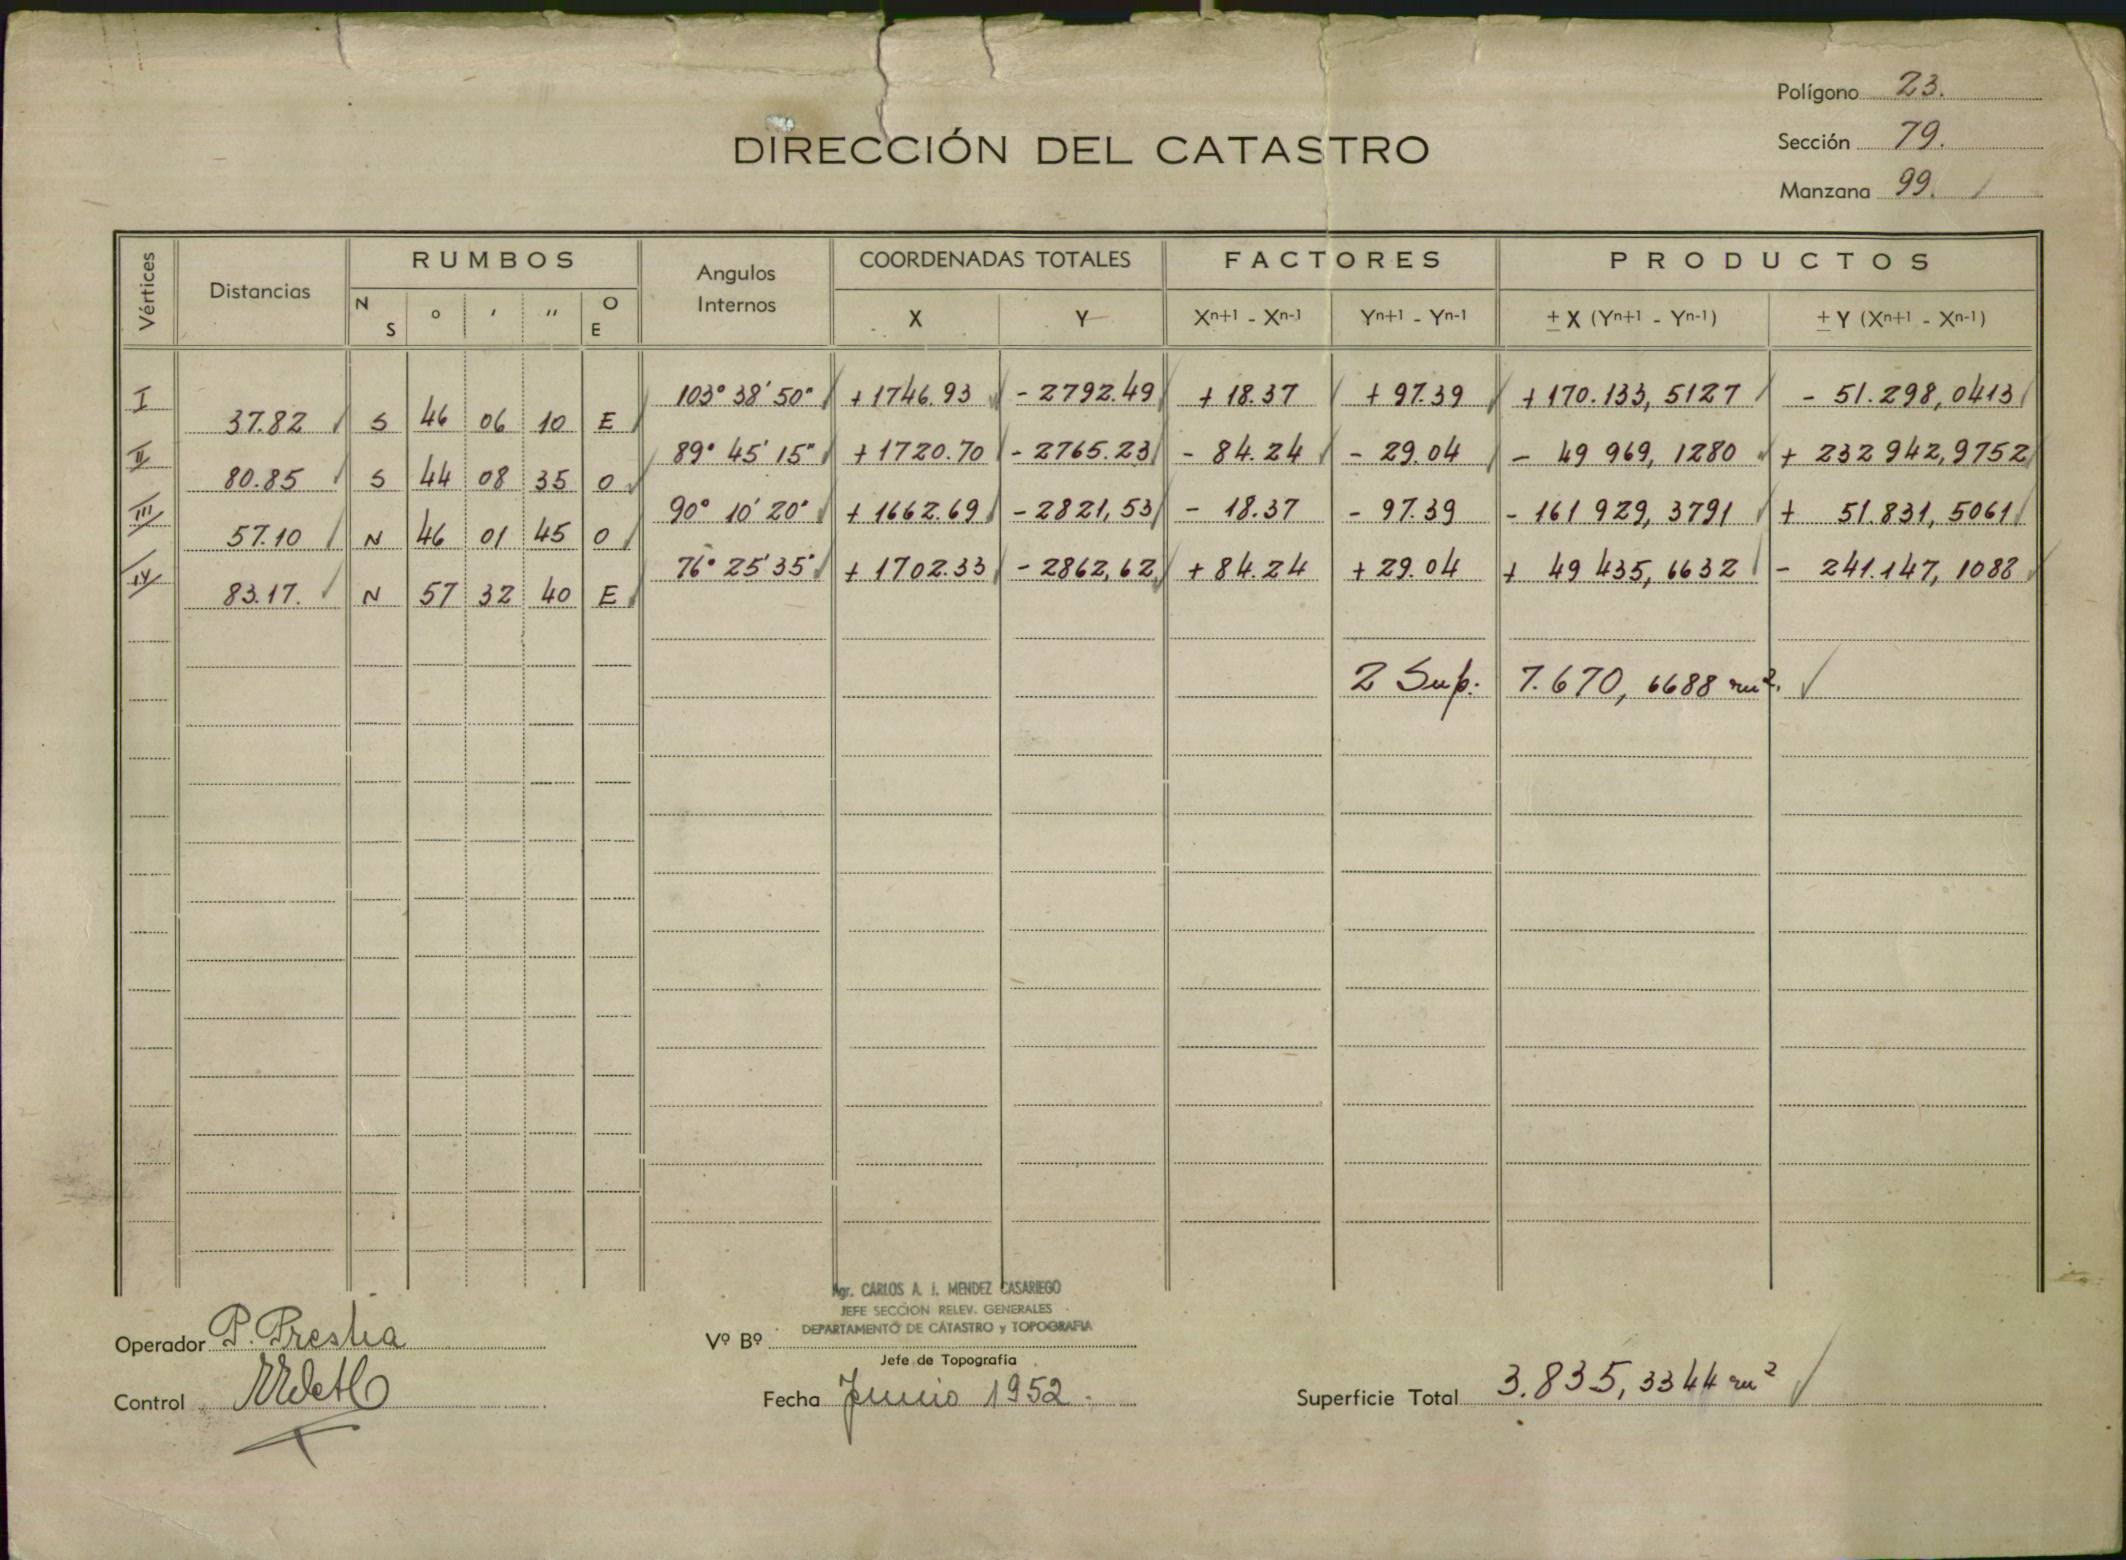 Polígono 23.
DIRECCIÓN DEL CATASTRO
Sección 79.
Manzana 99.
Vértices Distancias RUMBOS Angulos Internos COORDENADAS TOTALES FACTORES PRODUCTOS
N S ° ' '' O E X Y Xn+1 - Xn-1 Yn+1 - Yn-1 ± X (Yn+1 - Yn-1) ± Y (Xn+1 - Xn-1)
I 103° 38' 50" + 1746.93 - 2792.49 + 18.37 + 97.39 + 170.133,5127 - 51.298,0413
37.82 S 46 06 10 E
II 89° 45' 15" + 1720.70 - 2765.23 - 84.24 - 29.04 - 49 969,1280 + 232 942,9752
80.85 S 44 08 35 O
III 90° 10' 20" + 1662.69 - 2821,53 - 18.37 - 97.39 - 161 929,3791 + 51.831,5061
57.10 N 46 01 45 O
IV 76° 25' 35" + 1702.33 - 2862,62 + 84.24 + 29.04 + 49 435,6632 - 241.147,1088
83.17. N 57 32 40 E
2 Sup. 7.670,6688 m².
Agr. CARLOS A. J. MENDEZ CASARIEGO
JEFE SECCION RELEV. GENERALES
DEPARTAMENTO DE CATASTRO y TOPOGRAFIA
Operador P. Prestia
Vº Bº
Jefe de Topografía
Control
Fecha Junio 1952.
Superficie Total 3.835,3344 m²